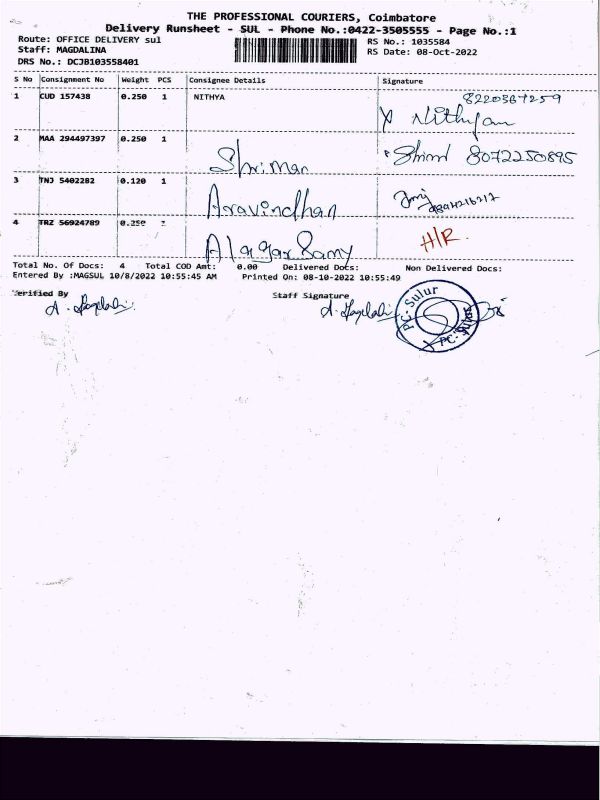 THE PROFESSIONAL COURIERS, Coimbatore
Delivery Runsheet - SUL - Phone No.:0422-3505555 - Page No.:1
Route: OFFICE DELIVERY sul
RS No.: 1035584
Staff: MAGDALINA
RS Date: 08-Oct-2022
DRS No.: DCJB103558401
S No Consignment No Weight PCS Consignee Details Signature
1 CUD 157438 0.250 1 NITHYA 8220367259
Nithya
2 MAA 294497397 0.250 1 Shriman 8072250895
3 TNJ 5402282 0.120 1 Aravindhan
4 TRZ 56924789 0.250 Alagar Samy H/R.
Total No. Of Docs: 4 Total COD Amt: 0.00 Delivered Docs: Non Delivered Docs:
Entered By :MAGSUL 10/8/2022 10:55:45 AM Printed On: 08-10-2022 10:55:49
Verified By Staff Signature
PC-Sulur